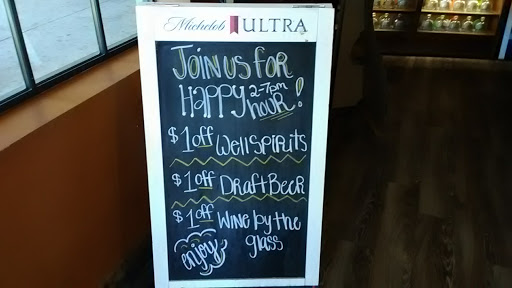 Michelob ULTRA
Join us for
Happy 2-7pm
hour!
$1 off Well Spirits
$1 off Draft Beer
$1 off Wine by the
glass
enjoy